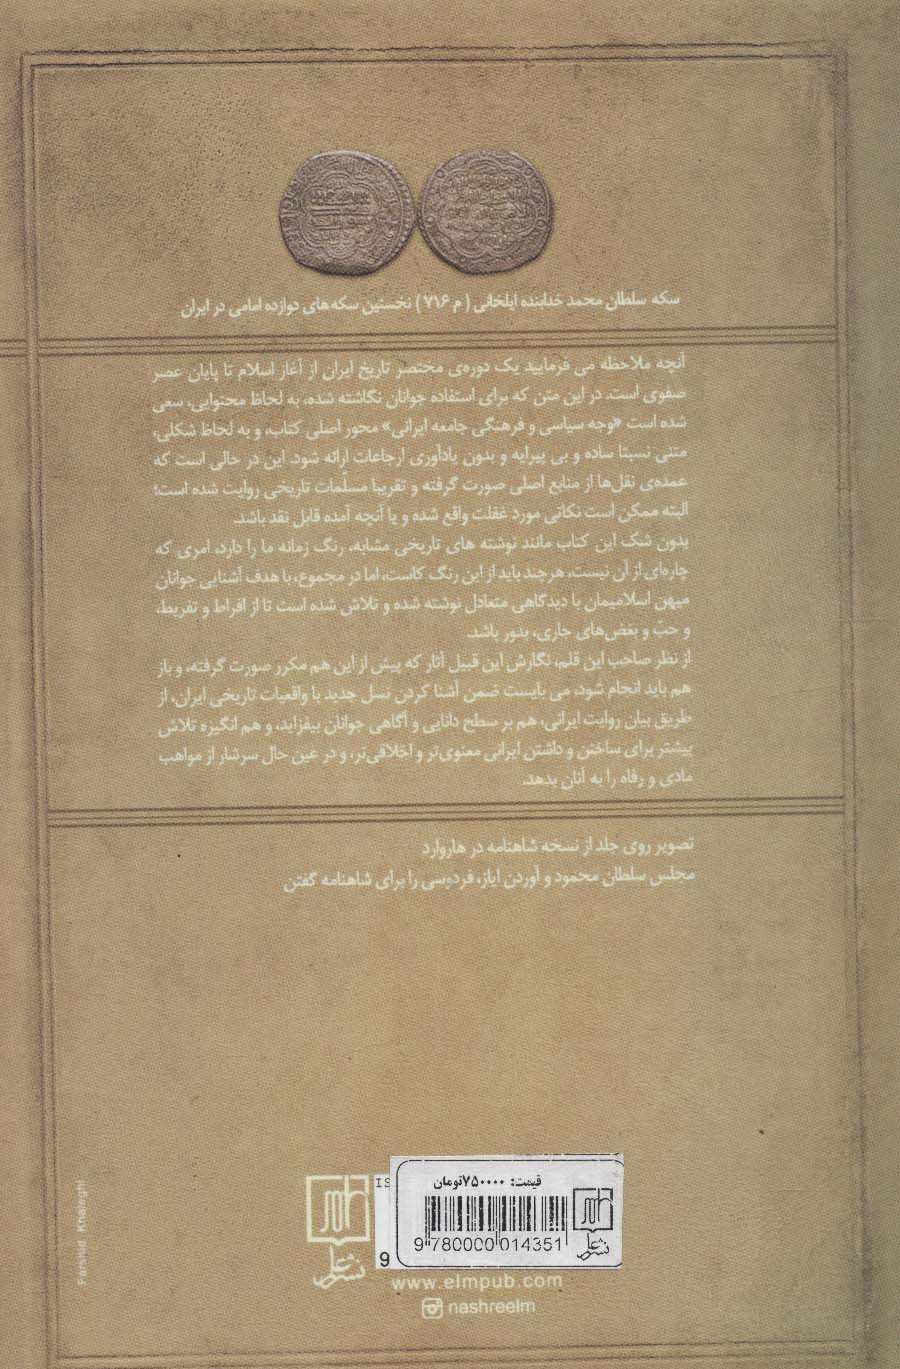 سکه سلطان محمد خدابنده ایلخانی ( م ۷۱۶ ) نخستین سکه‌های دوازده امامی در ایران
آنچه ملاحظه می فرمایید یک دوره‌ی مختصر تاریخ ایران از آغاز اسلام تا پایان عصر
صفوی است. در این متن که برای استفاده جوانان نگاشته شده، به لحاظ محتوایی، سعی
شده است «وجه سیاسی و فرهنگی جامعه ایرانی» محور اصلی کتاب، و به لحاظ شکلی،
متنی نسبتا ساده و بی پیرایه و بدون یادآوری ارجاعات ارائه شود. این در حالی است که
عمده‌ی نقل‌ها از منابع اصلی صورت گرفته و تقریبا مسلّمات تاریخی روایت شده است؛
البته ممکن است نکاتی مورد غفلت واقع شده و یا آنچه آمده قابل نقد باشد.
بدون شک این کتاب مانند نوشته های تاریخی مشابه، رنگ زمانه ما را دارد، امری که
چاره‌ای از آن نیست، هرچند باید از این رنگ کاست، اما در مجموع، با هدف آشنایی جوانان
میهن اسلامیمان با دیدگاهی متعادل نوشته شده و تلاش شده است تا از افراط و تفریط،
و حبّ و بغض‌های جاری، بدور باشد.
از نظر صاحب این قلم، نگارش این قبیل آثار که پیش از این هم مکرر صورت گرفته، و باز
هم باید انجام شود، می بایست ضمن آشنا کردن نسل جدید با واقعیات تاریخی ایران، از
طریق بیان روایت ایرانی، هم بر سطح دانایی و آگاهی جوانان بیفزاید، و هم انگیزه تلاش
بیشتر برای ساختن و داشتن ایرانی معنوی‌تر و اخلاقی‌تر، و در عین حال سرشار از مواهب
مادی و رفاه را به آنان بدهد.
تصویر روی جلد از نسخه شاهنامه در هاروارد
مجلس سلطان محمود و آوردن ایاز، فردوسی را برای شاهنامه گفتن
قیمت: ۷۵۰۰۰۰تومان
IS
9 780000 014351
9
نشر علم
نشر علم
www.elmpub.com
nashreelm
Farshid Khaleghi